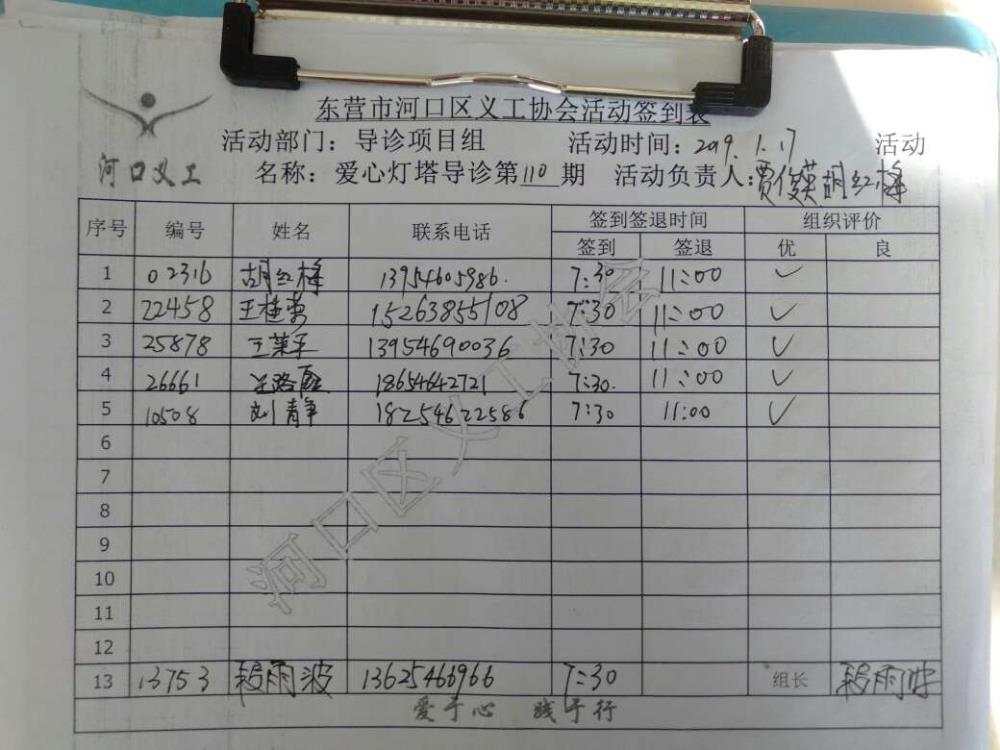 东营市河口区义工协会活动签到表
活动部门：导诊项目组 活动时间：2019.1.17 活动
河口义工
名称：爱心灯塔导诊第110期 活动负责人：贾俊英胡红梅
序号 编号 姓名 联系电话 签到签退时间 组织评价
签到 签退 优 良
1 02316 胡红梅 13954605986. 7:30 11:00 ✓
2 22458 王桂英 15263855108 7:30 11:00 ✓
3 25878 王莱平 13954690036 7:30 11:00 ✓
4 26661 18654642721 7:30. 11:00 ✓
5 10508 刘青争 18254622586 7:30 11:00 ✓
6
7
8
9
10
11
12
13 13753 段雨波 13625466966 7:30 组长 段雨波
爱于心 践于行
河口区义工协会